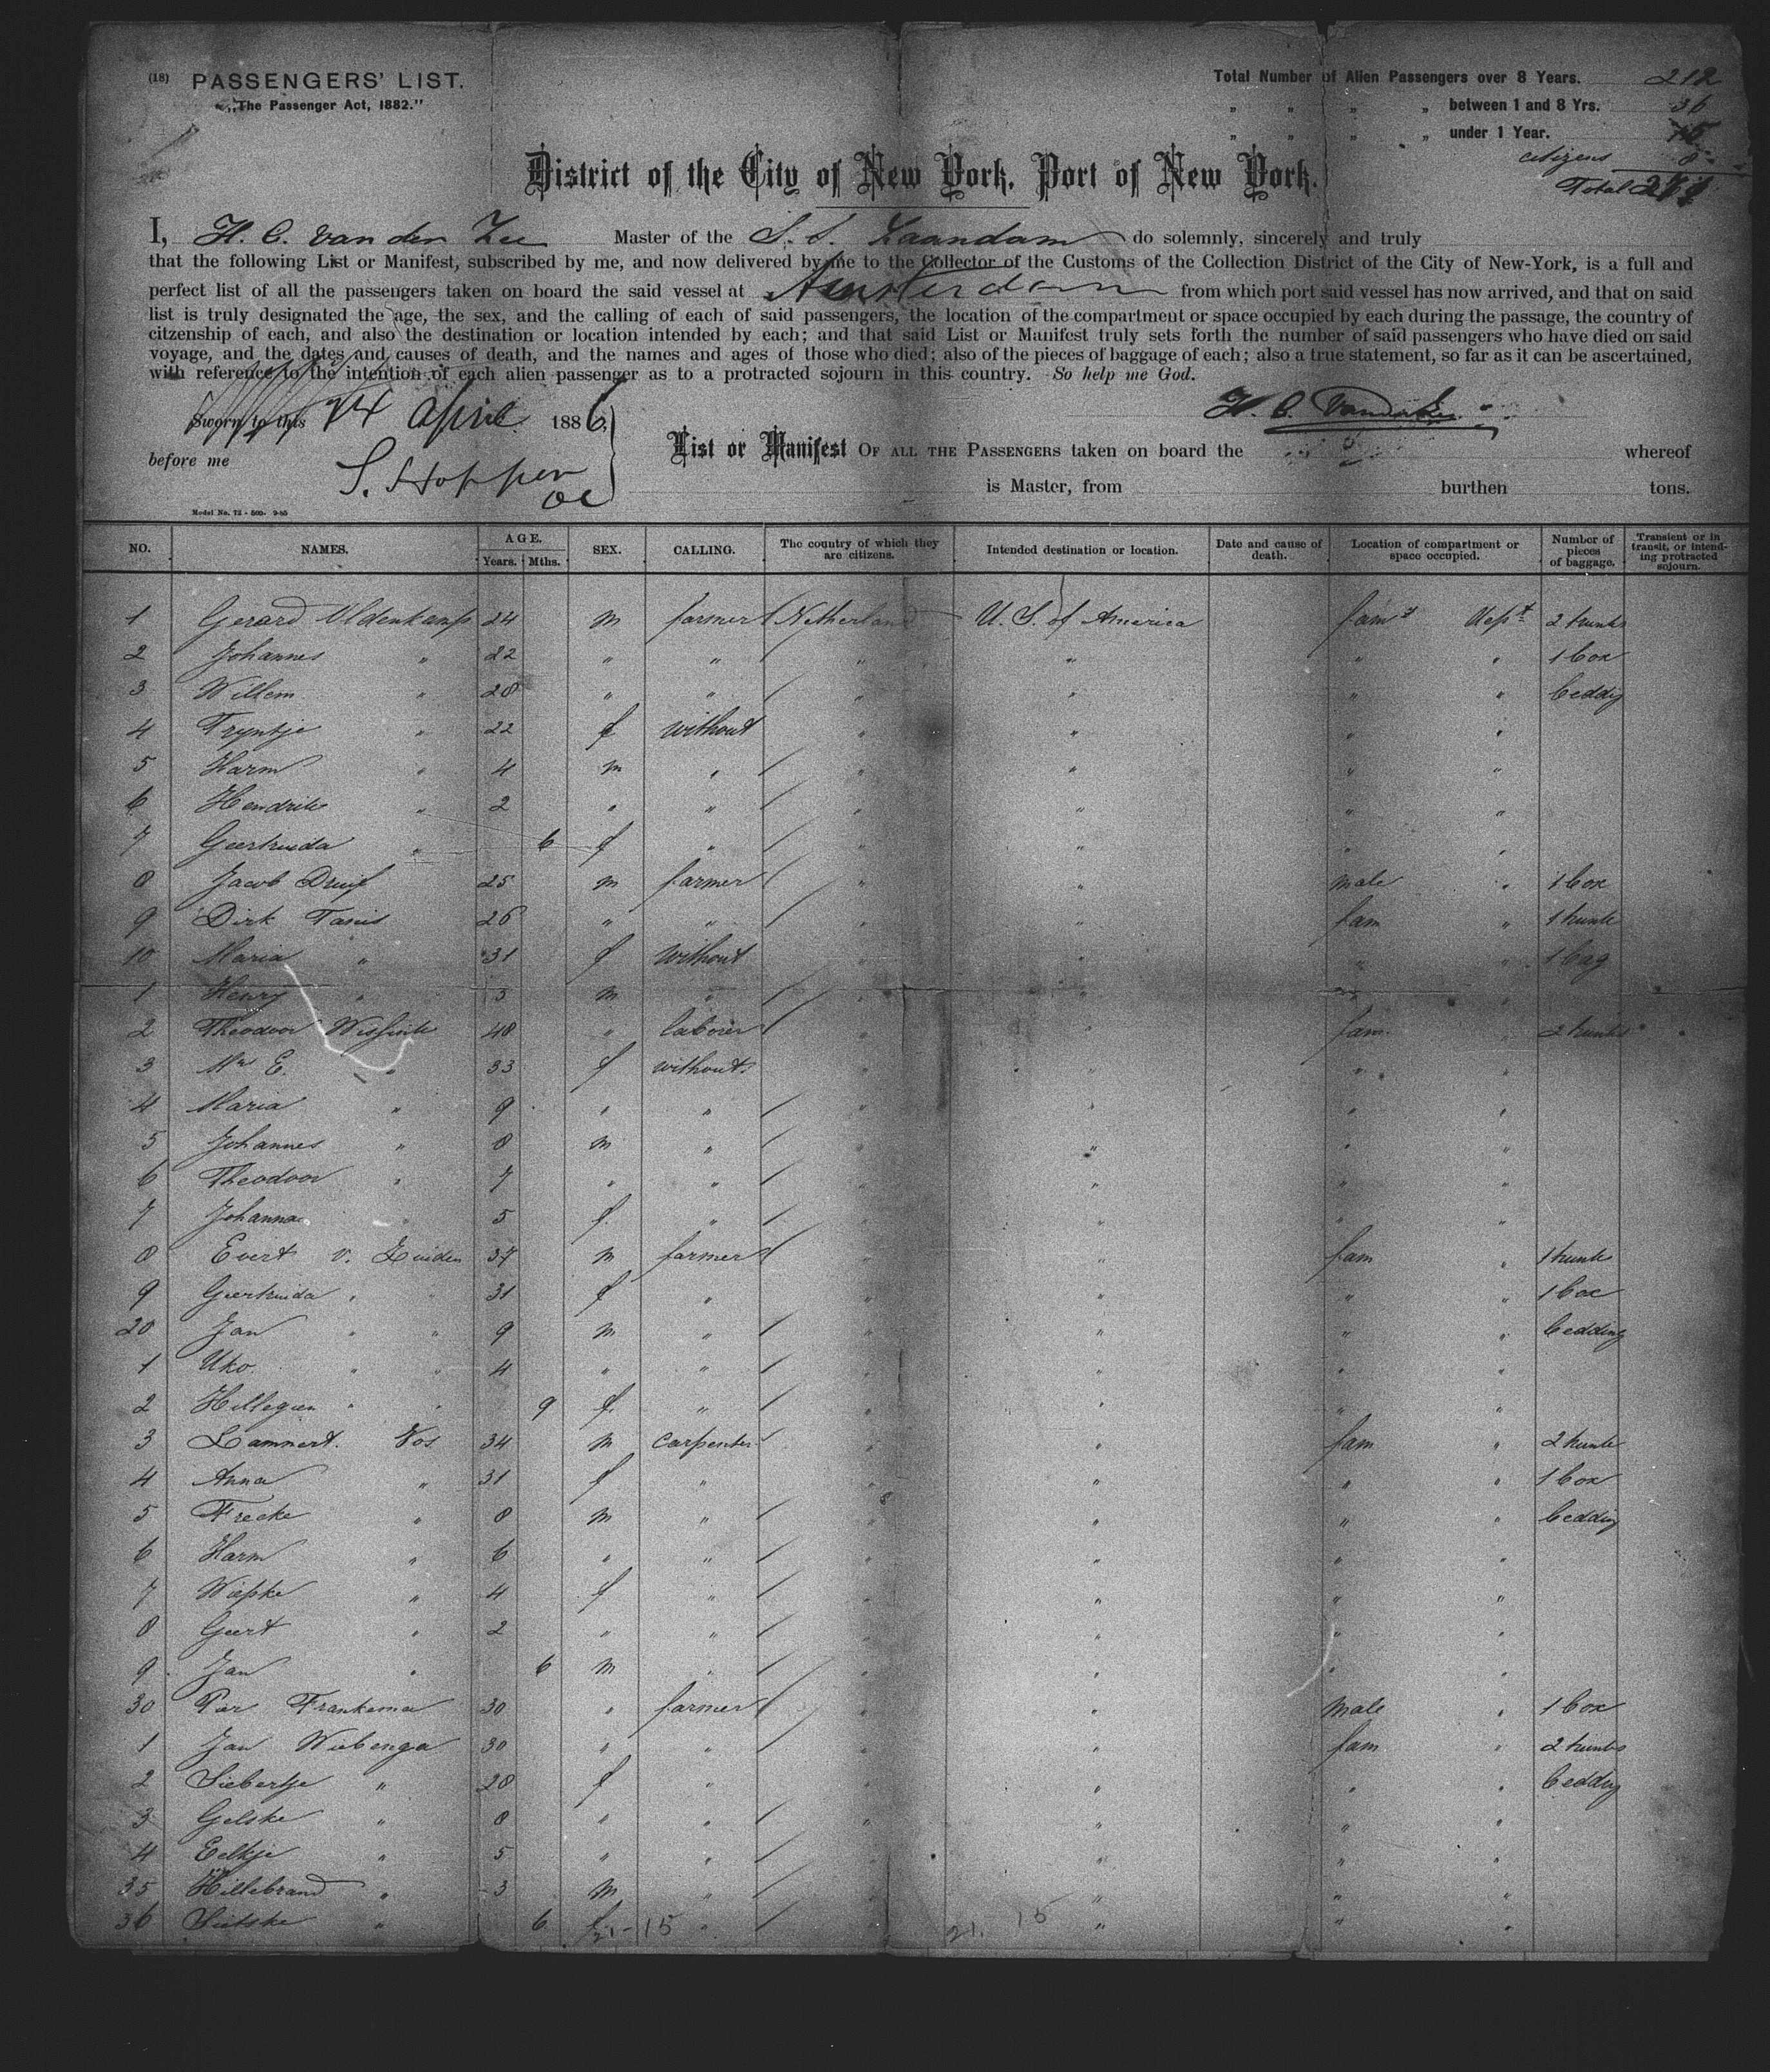 (18) PASSENGERS' LIST.
"The Passenger Act, 1882."
Total Number of Alien Passengers over 8 Years. 212
„ „ „ „ between 1 and 8 Yrs. 36
„ „ „ „ under 1 Year. 15
citizens 8
Total
District of the City of New York, Port of New York.
I, H. C. van der Zee Master of the S. S. Zaandam do solemnly, sincerely and truly
that the following List or Manifest, subscribed by me, and now delivered by me to the Collector of the Customs of the Collection District of the City of New-York, is a full and
perfect list of all the passengers taken on board the said vessel at Amsterdam from which port said vessel has now arrived, and that on said
list is truly designated the age, the sex, and the calling of each of said passengers, the location of the compartment or space occupied by each during the passage, the country of
citzenship of each, and also the destination or location intended by each; and that said List or Manifest truly sets forth the number of said passengers who have died on said
voyage, and the dates and causes of death, and the names and ages of those who died; also of the pieces of baggage of each; also a true statement, so far as it can be ascertained,
with reference to the intention of each alien passenger as to a protracted sojourn in this country. So help me God.
Sworn to this 24 April 1886, H. C. Vanderzee
before me S. Hopper
List or Manifest OF ALL THE PASSENGERS taken on board the whereof
is Master, from burthen tons.
Model No. 72 - 500- 9-85
NO. NAMES. AGE. Years. Mths. SEX. CALLING. The country of which they are citizens. Intended destination or location. Date and cause of death. Location of compartment or space occupied. Number of pieces of baggage. Transient or in transit, or intending protracted sojourn.
1 Gerard Oldenkamp 24 m farmer Netherland U. S. of America fam Dept 2 trunks
2 Johannes „ 22 „ „ „ „ „ „ 1 box
3 Willem „ 28 „ „ „ „ „ „ bedding
4 Tryntje „ 22 f without „ „ „ „
5 Harm „ 4 m „ „ „ „ „
6 Hendrik „ 2 „ „ „ „ „ „
7 Geertruida „ 6 f „ „ „ „ „
8 Jacob Druif 25 m farmer „ „ male „ 1 box
9 Dirk Tanis 26 „ „ „ „ fam „ 1 trunk
10 Maria „ 31 f without „ „ „ „ 1 bag
1 Henry „ 3 m „ „ „ „ „
2 Theodoor 48 „ laborer „ „ fam „ 2 trunks
3 Mrs E. „ 33 f without „ „ „ „
4 Maria „ 9 „ „ „ „ „ „
5 Johannes „ 8 m „ „ „ „ „
6 Theodoor „ 7 „ „ „ „ „ „
7 Johanna „ 5 f. „ „ „ „ „
8 Evert v. Zuiden 37 m farmer „ „ fam „ 1 trunk
9 Geertruida „ „ 31 f „ „ „ „ „ 1 box
20 Jan „ „ 9 m „ „ „ „ „ bedding
1 Uko „ „ 4 „ „ „ „ „ „
2 Hillegien „ „ 9 f. „ „ „ „ „
3 Lammert. Vos 34 m carpenter „ „ fam „ 2 trunk
4 Anna „ 31 f „ „ „ „ „ 1 box
5 Frecke „ 8 m „ „ „ „ „ bedding
6 Harm „ 6 „ „ „ „ „ „
7 Wiepke „ 4 f „ „ „ „ „
8 Geert „ 2 „ „ „ „ „ „
9 Jan „ 6 m „ „ „ „ „
30 Pier Frankema 30 „ farmer „ „ male „ 1 box
1 Jan Wiebenga 30 „ „ „ „ fam „ 2 trunks
2 Siebertje „ 28 f „ „ „ „ „ bedding
3 Gelske „ 8 „ „ „ „ „ „
4 Eelkje „ 5 „ „ „ „ „ „
35 Hillebrand „ 3 m „ „ „ „ „
36 Sietske „ 6 f. „ „ „ „ „
21-15 21. 15